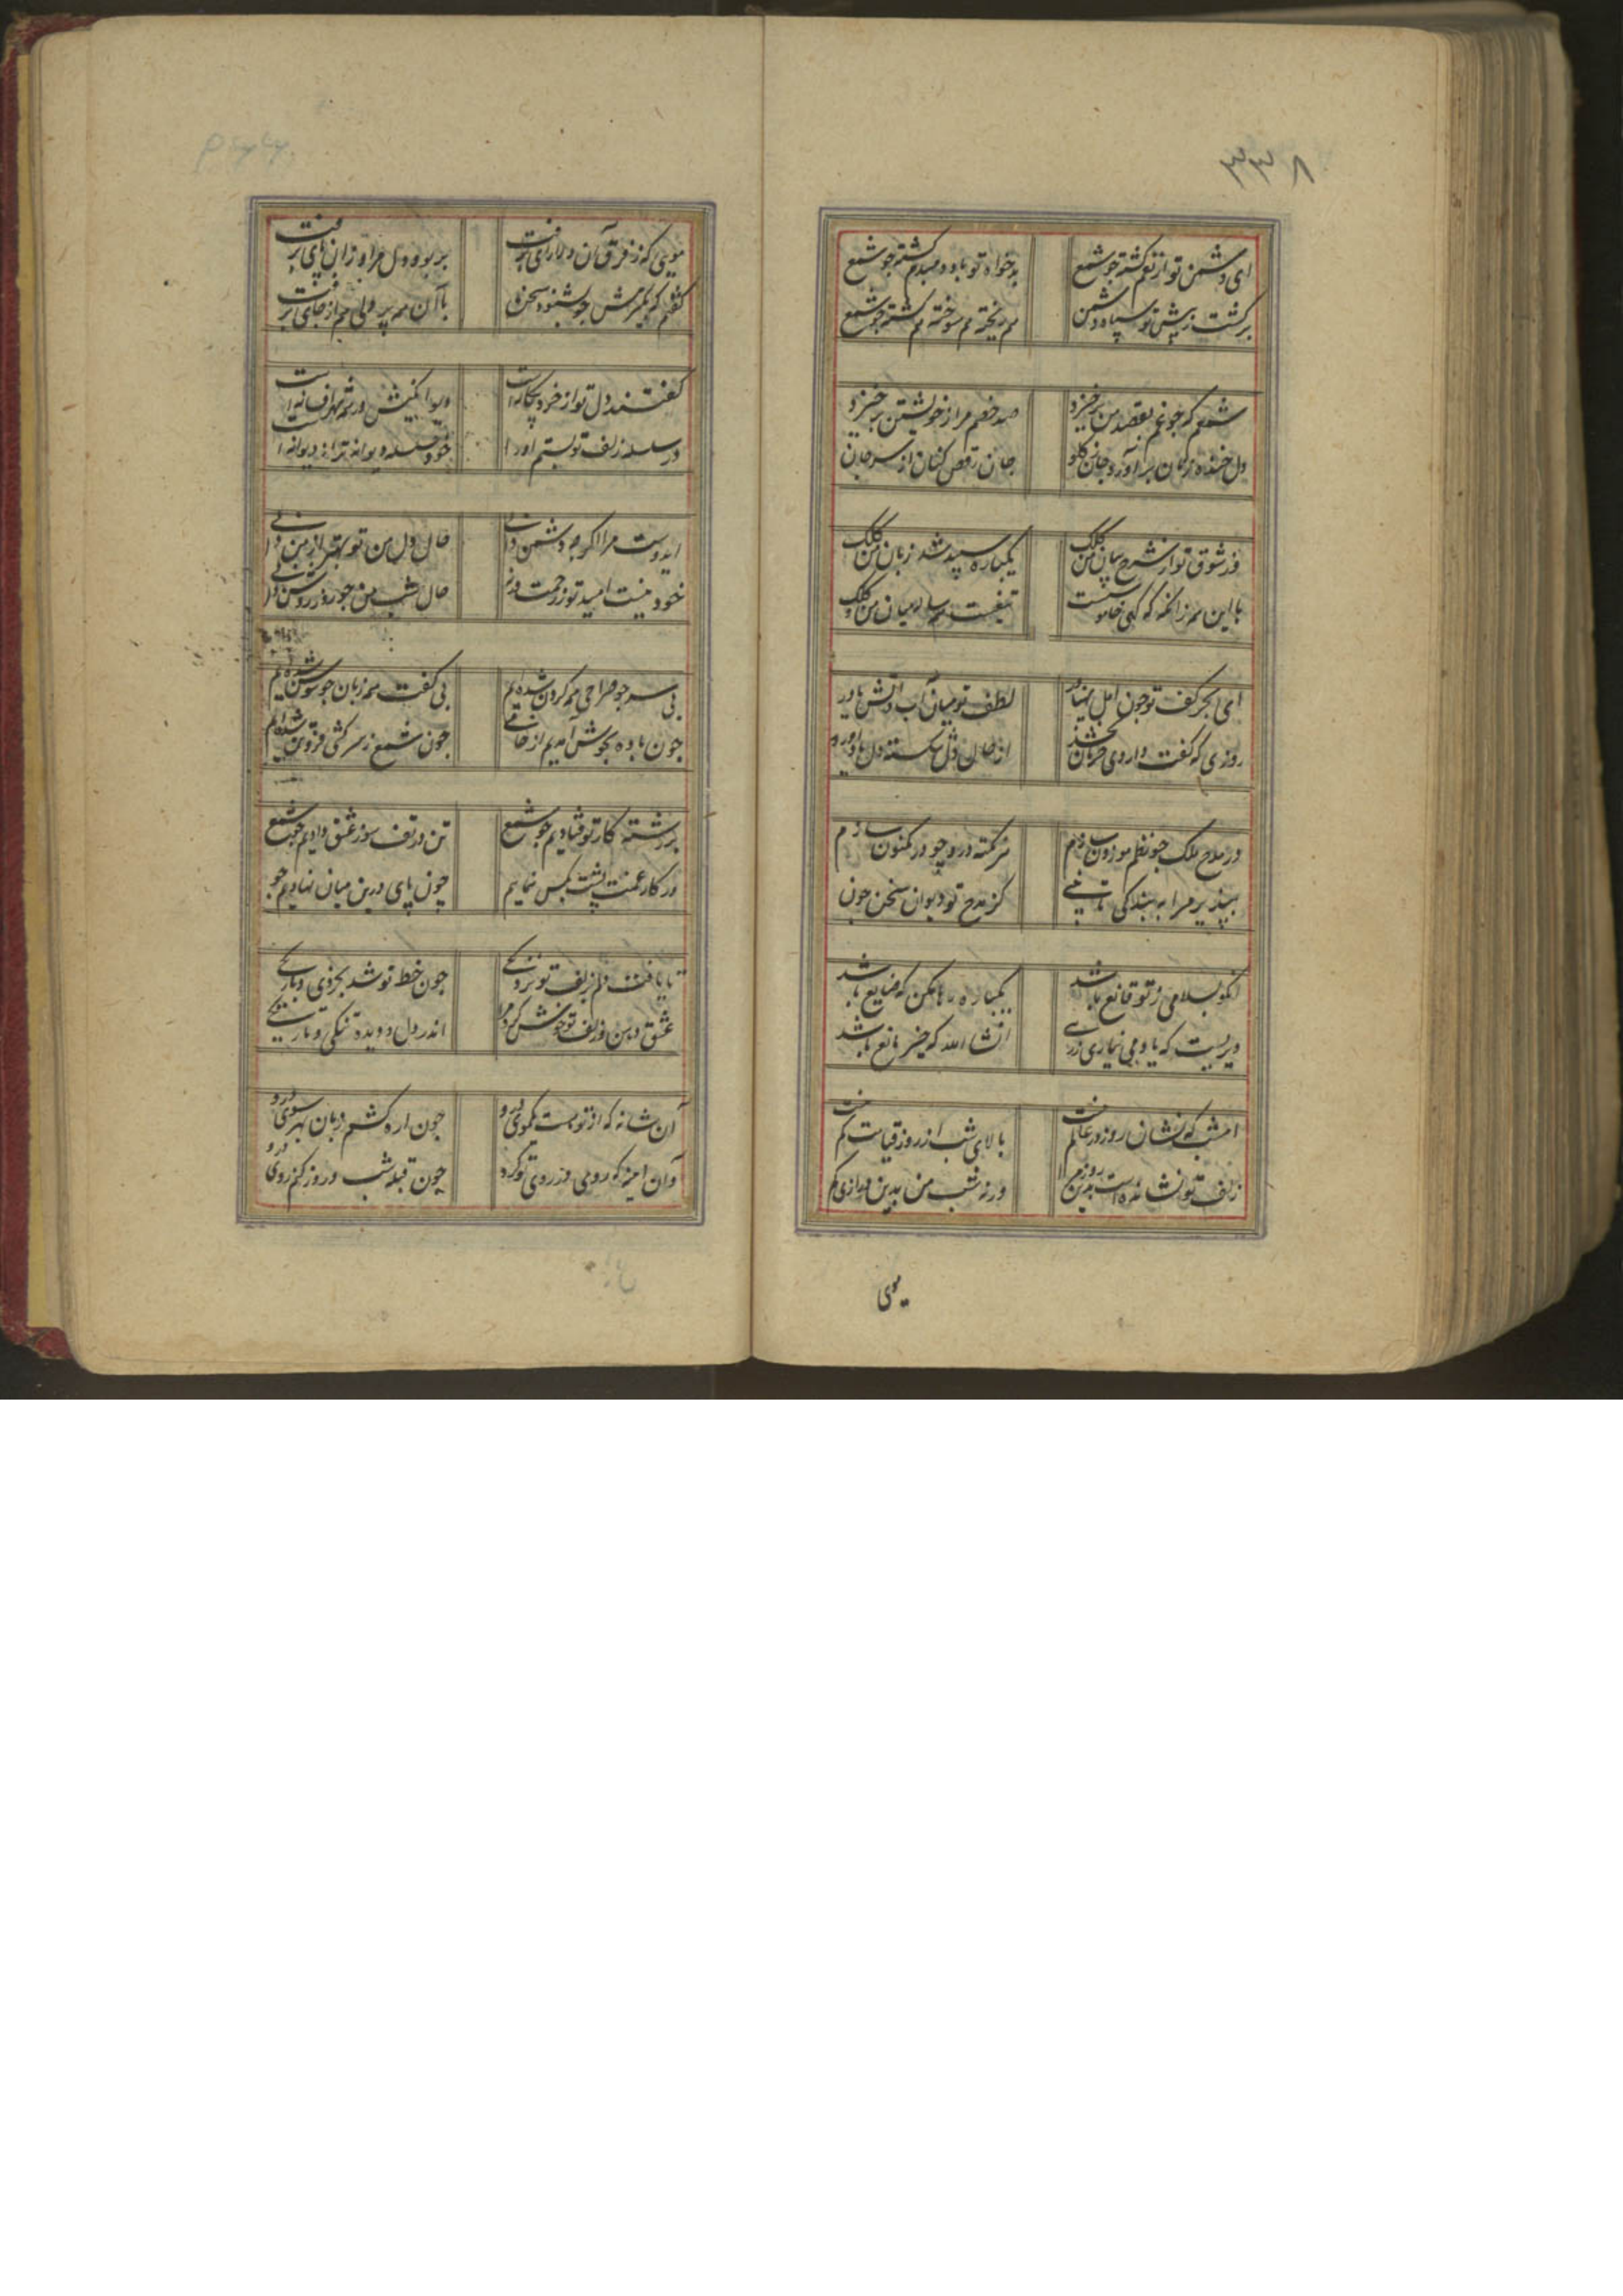 ۳۳۸
ای دشمن تو از تو کشته چو شمع
بدخواه تو باد و مبدم کشته چو شمع
برکشت ز پیش تو سپاه دشمن
هم ریخته هم سوخته هم کشته چو شمع
شمعم که چو غم بقصد من برخیزد
صد خصم مرا ز خویشتن برخیزد
دل خنده زنان بر آورد جان کلو
جان رقص کنان از سر جان
در شوق تو از شرح بیان من کلک
یکباره سپید شد زبان من کلک
با این همه زانکه که کهی خاموشست
تیغست میان من و کلک
ای بحر کف تو چون امل پهناور
لطف تو میان آب و آتش یاور
روزی که کفت داروی حرمان بخشد
از حال دل شکسته دل یاد آور
در مدح ملک چو نظم موزون سازم
هر نکته درو چو در مکنون سازم
بپذیر مرا به بندکی تا نفسی
کز مدح تو دیوان سخن چون
انکو بسلامی ز تو قانع باشد
یکباره رها مکن که ضایع باشد
دیریست که یاد می نیاری ز رهی
انشاالله که خیر مانع باشد
امشب که نشان روز در عالم نیست
بالای شب از روز قیامت کم نیست
زلف تو نشانده است بدین روز مرا
ورنه شب من بدین درازی هم
موی
مویی که ز فرق آن دلارای برفت
بربود دل مرا و زان پای برفت
گفتم که بکنمش چو بشنود سخن
با آن همه پر دلی هم از جای برفت
کفتند دل تو از خرد بیکانه است
دیوانگیش در همه شهر افسانه است
در سلسله زلف تو بستم او را
خود سلسله دیوانه تر از دیوانه است
ایدوست مرا اگرچه دشمن دانی
حال دل من تو بهتر از من دانی
خود نیست امید تو ز رحمت ورنه
حال شب من چو روز روشن دانی
بی سر چو صراحی همه کردن شده‌ایم
بی کفت همه زبان چو سوسن شده‌ایم
چون باده بجوش آمدیم از خامی
چون شمع ز سر کشی فروتن شده‌ایم
بر رشته کار تو فتادیم چو شمع
تن در تف سوز عشق دادیم چو شمع
در کار غمت پشت بکس ننمایم
چون پای درین میان نهادیم چو
تا یافت دلم بزلف تو نزدیکی
چون خط تو شد بخردی و باریکی
عشق دهن و زلف تو خوش کرد مرا
اندر دل و دیده تنکی و تاریکی
آن شانه که از تو هست یکموی درو
چون اره کشم زبان بهر سوی درو
وان اینه که رومی در روی تو کرد
چون قبله شب و روز کنم روی درو